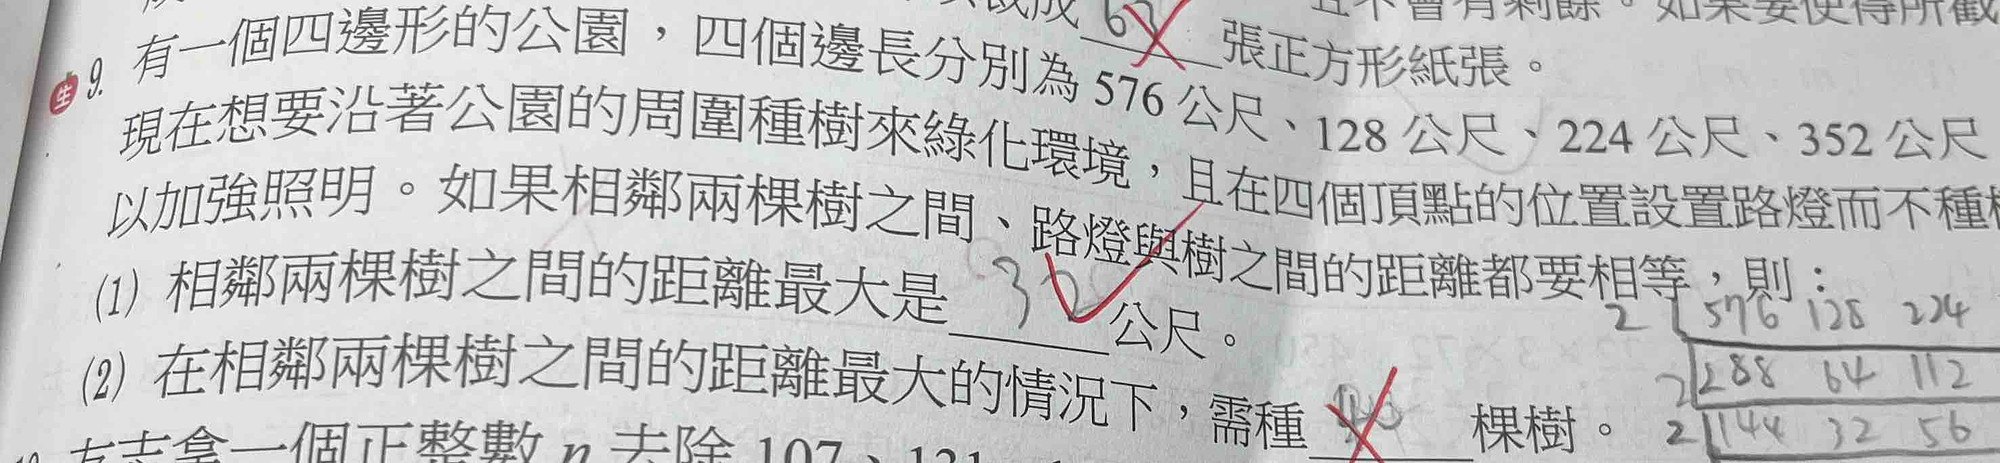 張正方形紙張。
生 9. 有一個四邊形的公園，四個邊長分別為 576 公尺、128 公尺、224 公尺、352 公尺
現在想要沿著公園的周圍種樹來綠化環境，且在四個頂點的位置設置路燈而不種
以加強照明。如果相鄰兩棵樹之間、路燈與樹之間的距離都要相等，則：
(1) 相鄰兩棵樹之間的距離最大是 32 公尺。
(2) 在相鄰兩棵樹之間的距離最大的情況下，需種 棵樹。
2 576 128 224
2 288 64 112
2 144 32 56
拿一個正整數 n 去除 107、